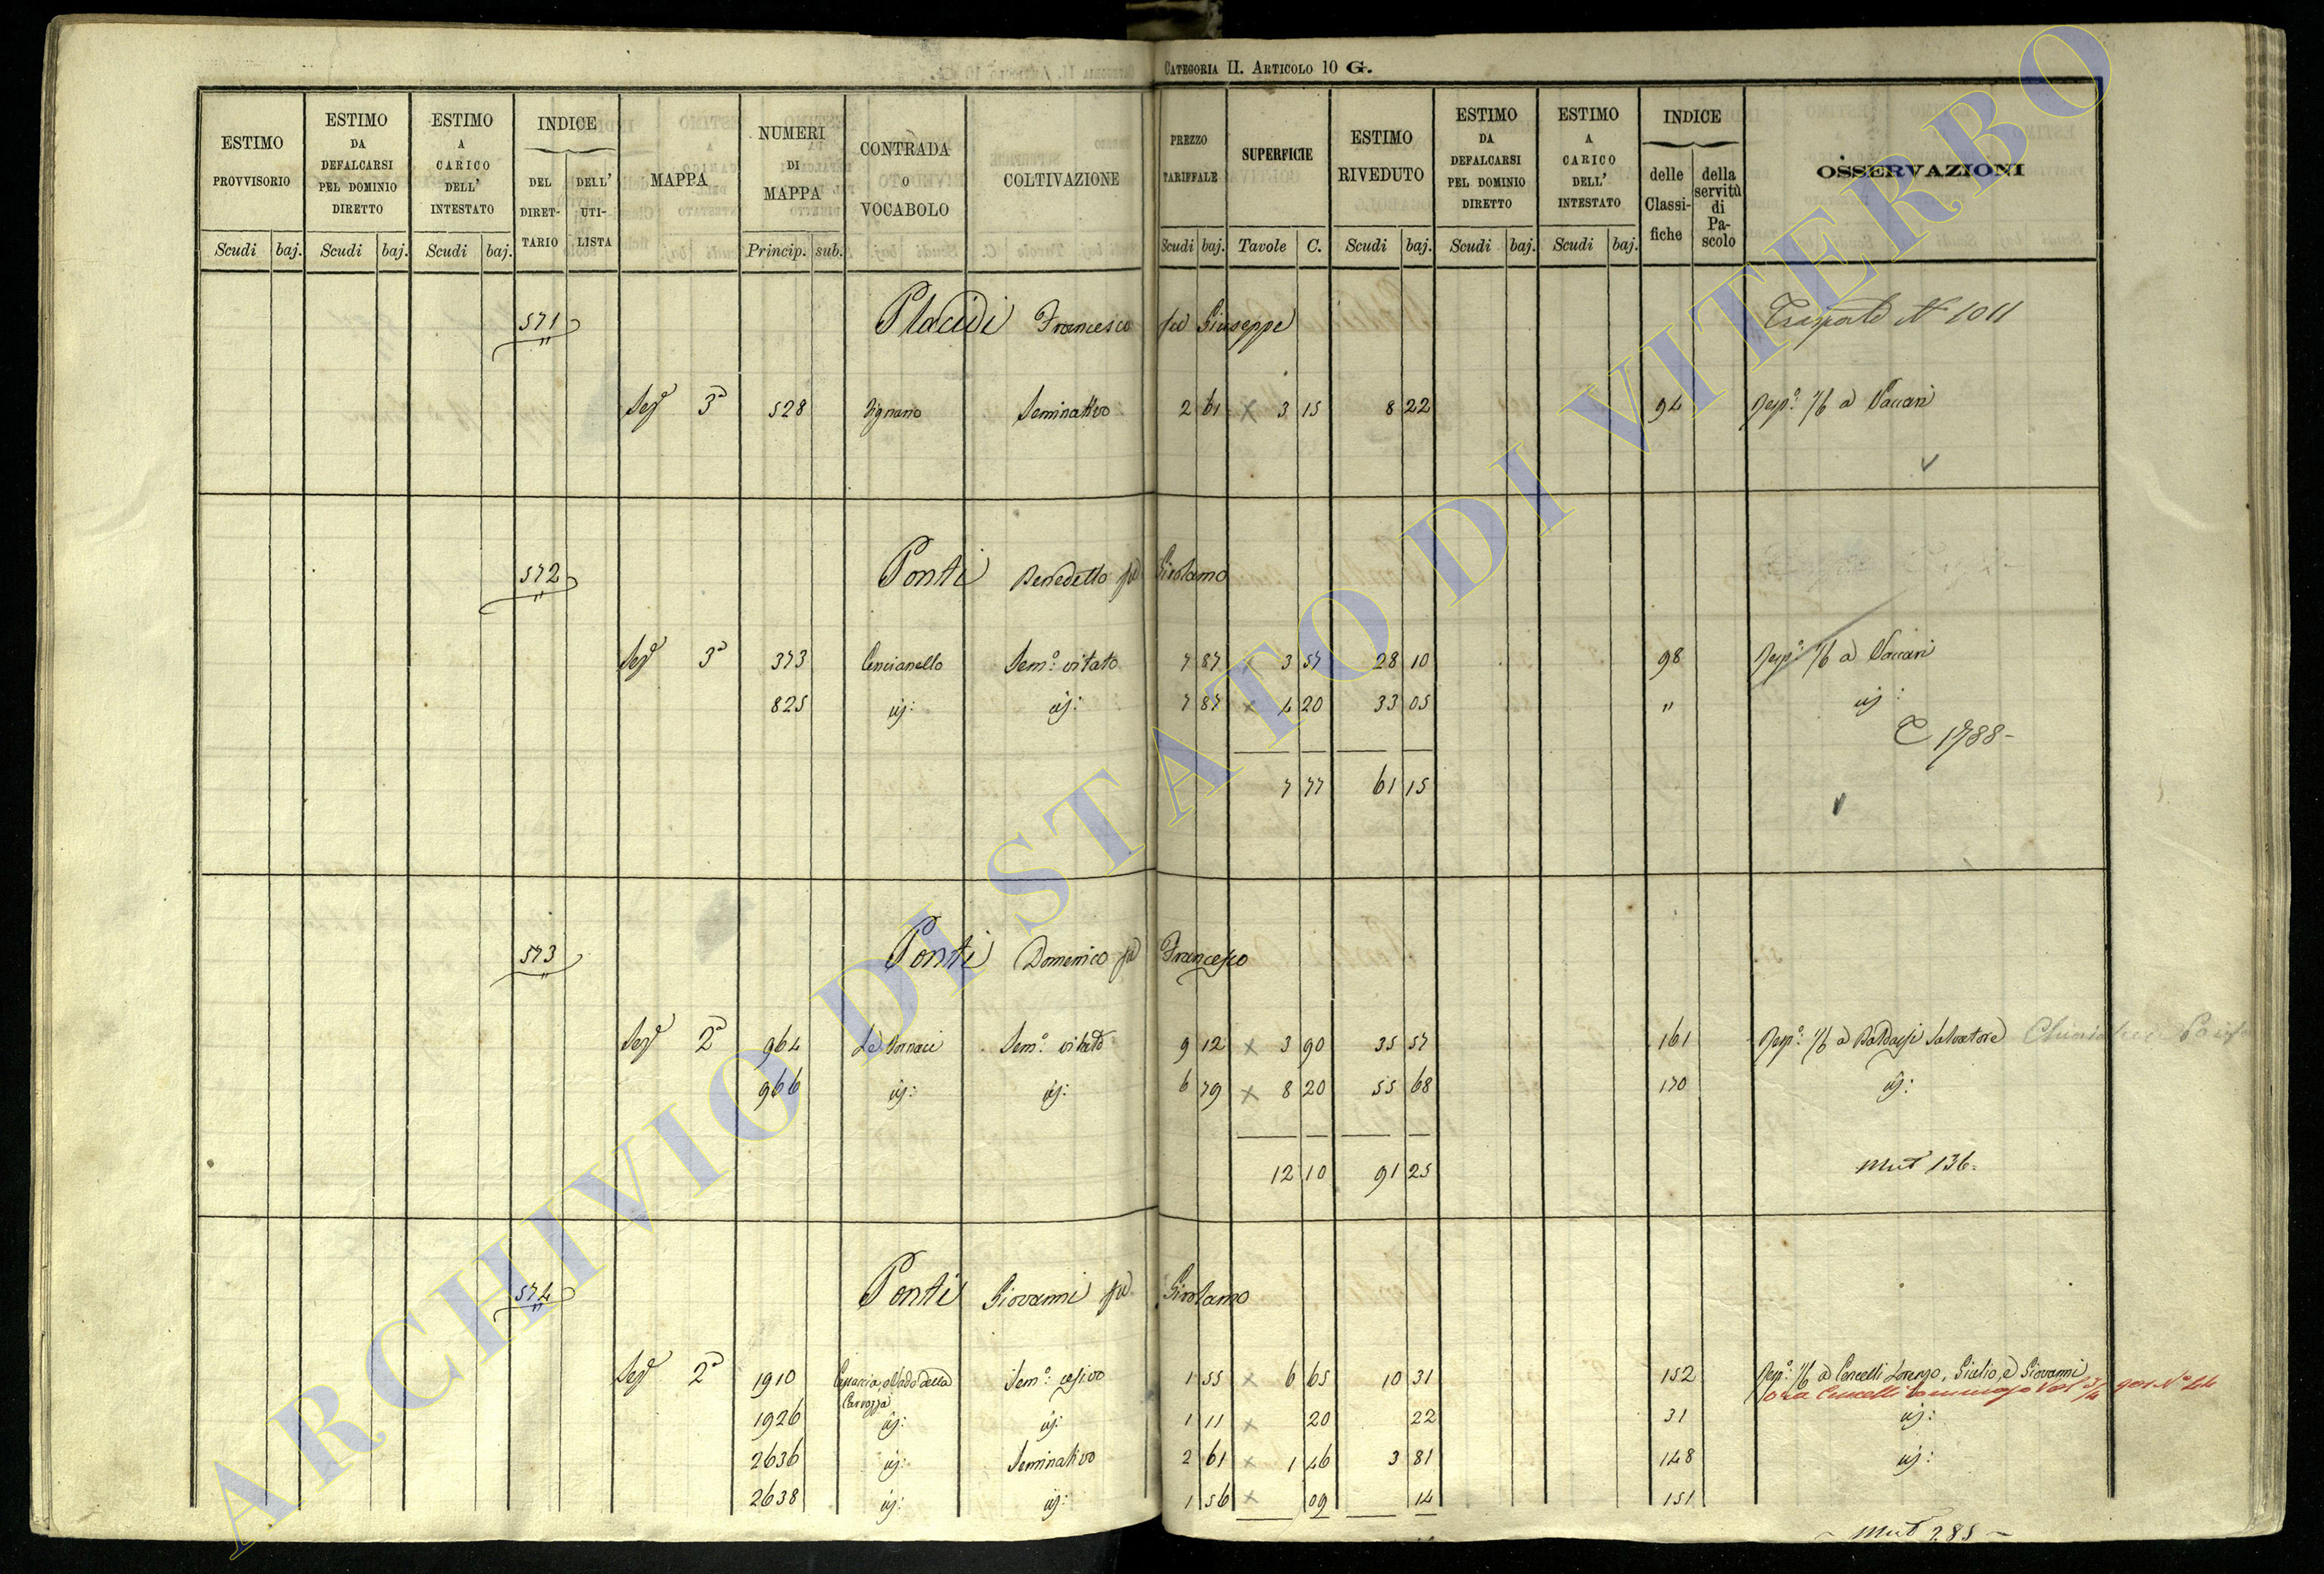 CATEGORIA II. ARTICOLO 10 G.
ESTIMO PROVVISORIO
ESTIMO DA DEFALCARSI PEL DOMINIO DIRETTO
ESTIMO A CARICO DELL' INTESTATO
INDICE
DEL DIRET-TARIO
DELL' UTI-LISTA
MAPPA
NUMERI DI MAPPA
CONTRADA O VOCABOLO
COLTIVAZIONE
PREZZO TARIFFALE
SUPERFICIE
ESTIMO RIVEDUTO
ESTIMO DA DEFALCARSI PEL DOMINIO DIRETTO
ESTIMO A CARICO DELL' INTESTATO
INDICE
delle Classi-fiche
della servitù di Pa-scolo
OSSERVAZIONI
Scudi baj. Scudi baj. Scudi baj. Princip. sub. Scudi baj. Tavole C. Scudi baj. Scudi baj. Scudi baj.
571 Placidi Francesco fu Giuseppe Trasporto N 1011
Sez.e 3a 528 Vignano Seminativo 2 61 x 3 15 8 22 94 Risp.a 1/6 a Vaccari
572 Ponti Benedetto fu Girolamo
Sez.e 3a 373 Cencianello Sem.o vitato 7 87 x 3 57 28 10 98 Risp.a 1/6 a Vaccari
825 id: id: 7 87 x 4 20 33 05 " id:
1788
7 77 61 15
573 Ponti Domenico fu Francesco
Sez.e 2a 964 Le Fornaci Sem.o vitato 9 12 x 3 90 35 57 161 Risp.a 1/6 a Baldassi Salvatore
966 id: id: 6 79 x 8 20 55 68 170 id:
12 10 91 25 Mut 136
574 Ponti Giovanni fu Girolamo
Sez.e 2a 1910 della Carrozza Sem.o cesivo 1 55 x 6 65 10 31 152 Risp.a 1/6 a Cencelli Lorenzo, Giulio, e Giovanni
ora Cencelli Tommaso
1926 id: id: 1 11 x 20 22 31 id:
2636 id: Seminativo 2 61 x 1 46 3 81 148 id:
2638 id: id: 1 56 x 09 14 151
Mut 285
ARCHIVIO DI STATO DI VITERBO